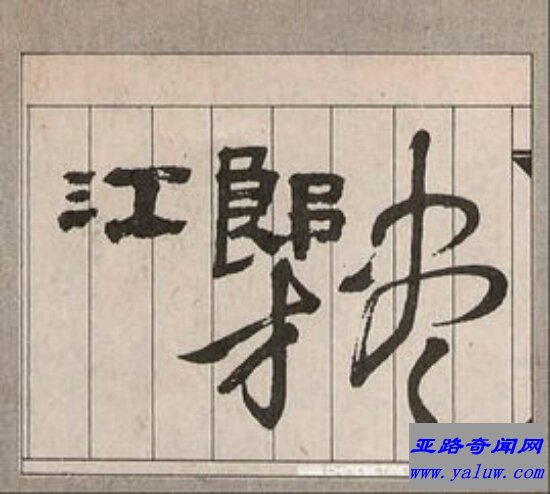 江郎才尽
亚路奇闻网
www.yaluw.com